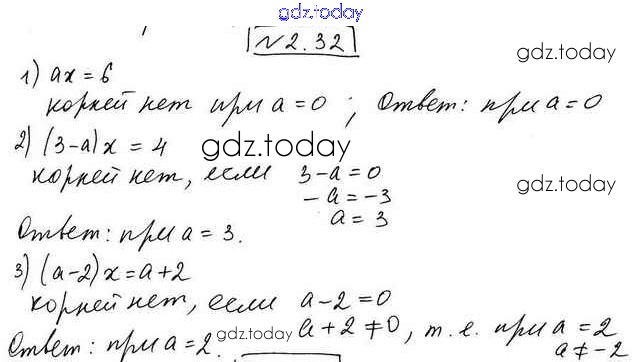 gdz.today
№2.32
gdz.today
1) ax = 6
корней нет при a = 0 ; Ответ: при a = 0
2) (3-a)x = 4
gdz.today
корней нет, если 3-a=0
-a=-3
gdz.today
a = 3
Ответ: при a = 3.
3) (a-2)x = a+2
корней нет, если a-2=0
a+2≠0, т.е. при a = 2
a≠-2
Ответ: при a = 2.
gdz.today